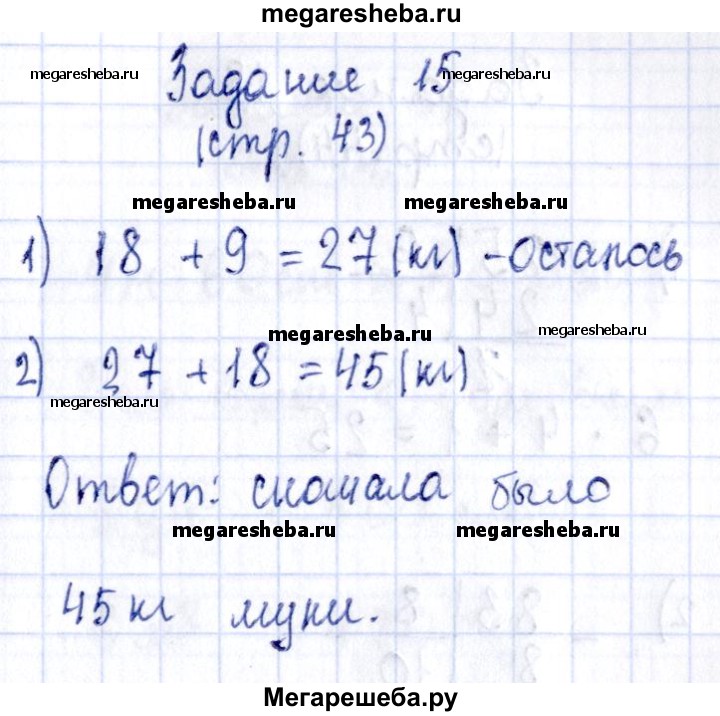 megaresheba.ru
Задание 15
megaresheba.ru megaresheba.ru
(стр. 43)
megaresheba.ru megaresheba.ru
1) 18 + 9 = 27 (кг) - Осталось
megaresheba.ru megaresheba.ru
2) 27 + 18 = 45 (кг)
megaresheba.ru
Ответ: сначала было
megaresheba.ru megaresheba.ru
45 кг муки.
Мегарешеба.ру